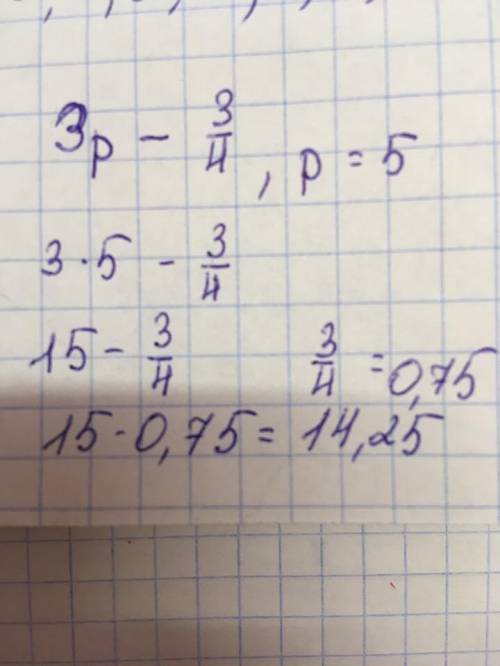 3p - 3/4, p = 5
3·5 - 3/4
15 - 3/4 3/4 = 0,75
15 - 0,75 = 14,25